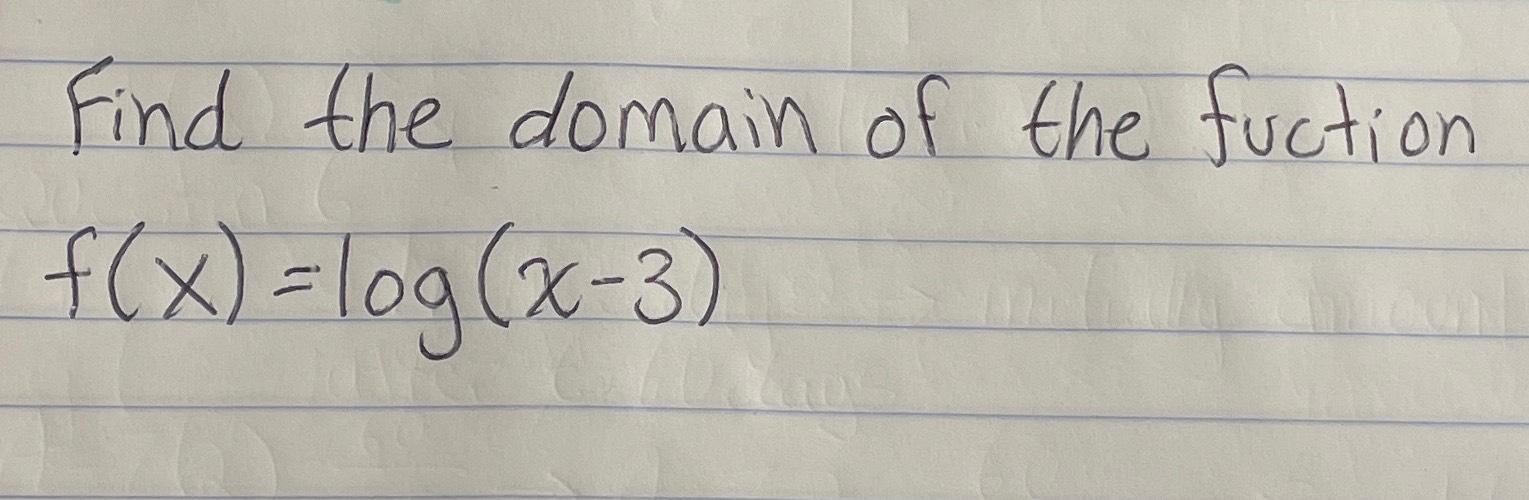 Find the domain of the fuction
f(x)=log(x-3)